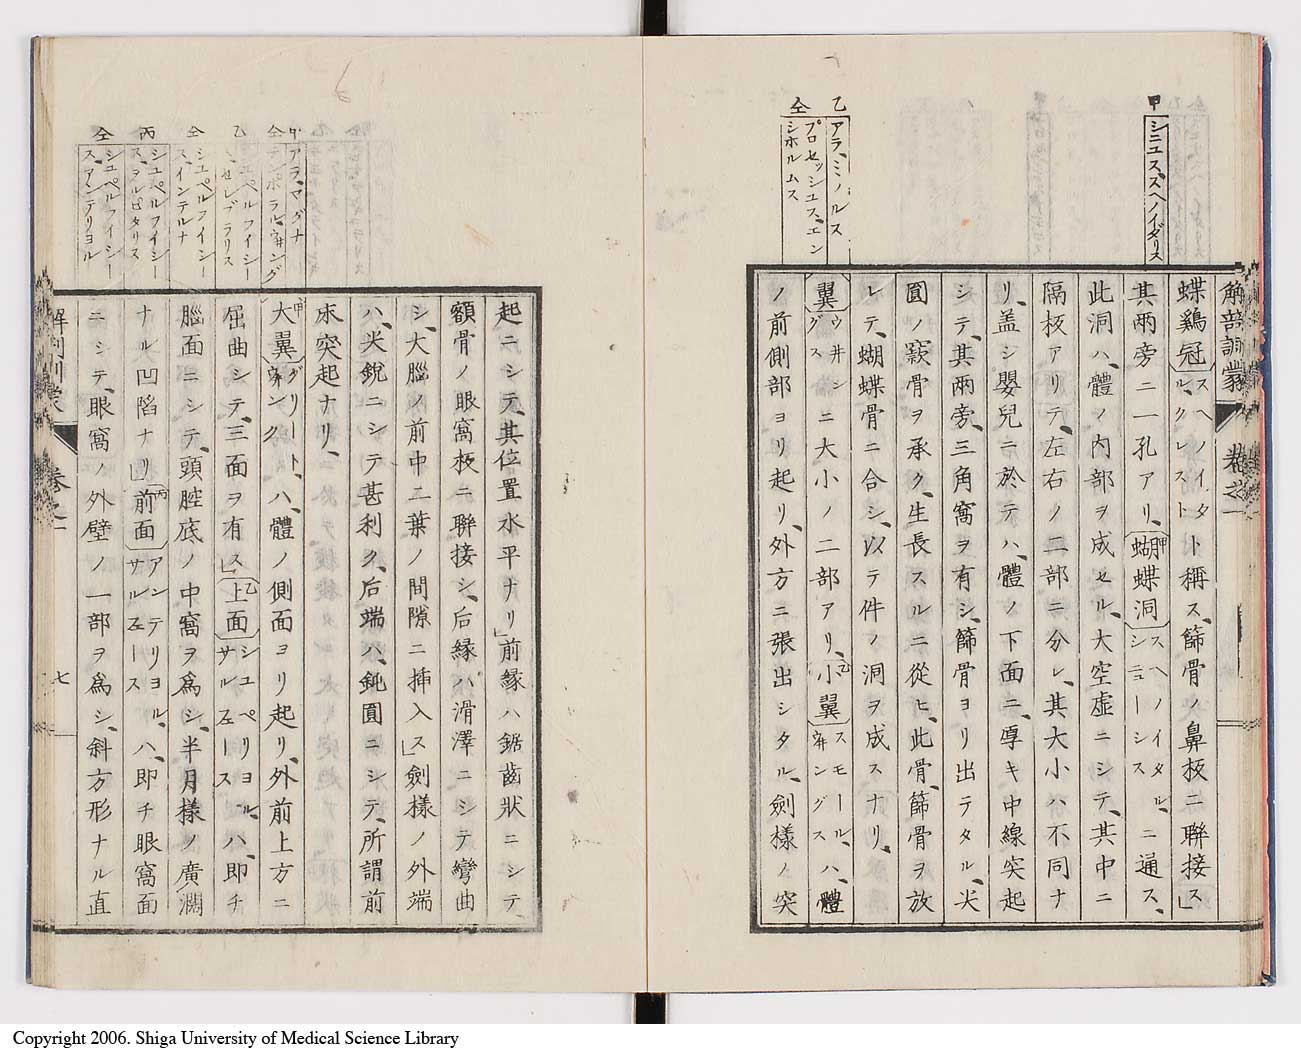 甲
シニユス、スヘノイダリス
乙
アラ、ミノルス
仝
プロセッシュス、エン
シホルムス
解剖訓蒙 卷之一
蝶鷄冠スヘノイダル、クレストト稱ス、篩骨ノ鼻板ニ聯接ス」
其兩旁ニ一孔アリ、蝴蝶洞スヘノイダル、シニューシスニ通ス、
此洞ハ、體ノ內部ヲ成セル、大空虛ニシテ、其中ニ
隔板アリテ、左右ノ二部ニ分レ、其大小ハ不同ナ
リ、盖シ嬰兒ニ於テハ、體ノ下面ニ、厚キ中線突起
シテ、其兩旁、三角窩ヲ有シ、篩骨ヨリ出テタル、尖
圓ノ窾骨ヲ承ク、生長スルニ從ヒ、此骨、篩骨ヲ放
レテ、蝴蝶骨ニ合シ、以テ件ノ洞ヲ成スナリ、
翼ウ井ングスニ大小ノ二部アリ、乙小翼スモール、ウ井ングスハ、體
ノ前側部ヨリ起リ、外方ニ張出シタル、劍樣ノ突
甲
アラ、マグナ
仝
テンポラル、ウ井ング
乙
シユペルフイシー
セレブラリス
仝
シユペルフイシー
ス、インテルナ
丙
シユペルフイシー
ス、ヲルビタリス
仝
シユペルフイシー
ス、アンテリヨル
起ニシテ、其位置水平ナリ」前緣ハ鋸齒狀ニシテ、
額骨ノ眼窩板ニ聯接シ、后緣ハ滑澤ニシテ彎曲
シ、大腦ノ前中二葉ノ間隙ニ挿入ス」劍樣ノ外端
ハ、尖銳ニシテ甚利ク、后端ハ、鈍圓ニシテ、所謂前
床突起ナリ、
甲大翼グリート、ウ井ングハ、體ノ側面ヨリ起リ、外前上方ニ
屈曲シテ、三面ヲ有ス」乙上面シユペリヨル、サルフェースハ、卽チ
腦面ニシテ、頭腔底ノ中窩ヲ爲シ、半月樣ノ廣濶
ナル凹陷ナリ」丙前面アンテリヨル、サルフェースハ、卽チ眼窩面
ニシテ、眼窩ノ外壁ノ一部ヲ爲シ、斜方形ナル直
解剖訓蒙 卷之一 七
Copyright 2006. Shiga University of Medical Science Library